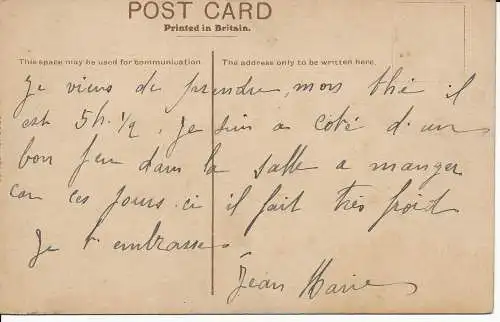 POST CARD
Printed in Britain.
This space may be used for communication. The address only to be written here.
Je viens de prendre, mon thé il
est 5h. 1/2, Je suis a coté d'un
bon feu dans la salle a manger
car ces jours-ci il fait très froid
Je t'embrasse
Jean Marie